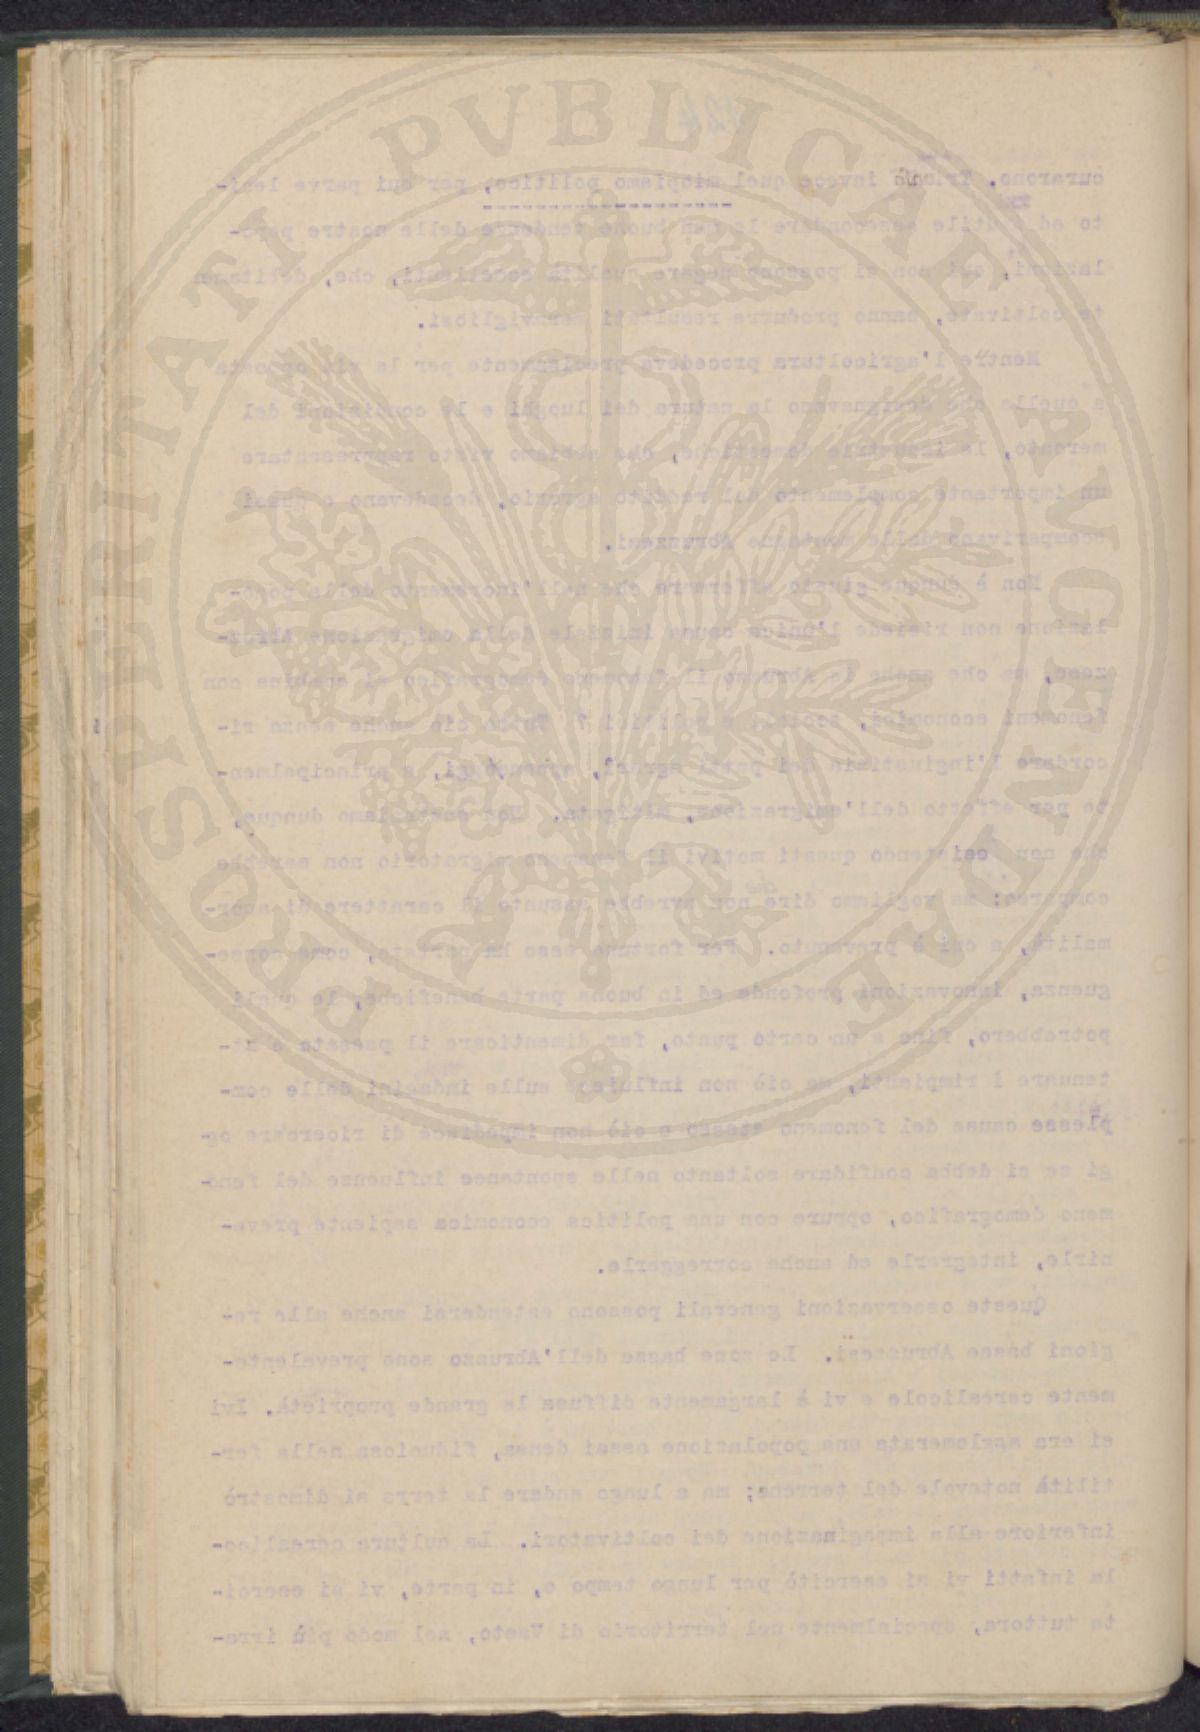 PROSPERITATI PVBLICAE AVGENDAE
124
curarono. Trionfò invece quel miopismo politico, per cui parve leci-
to ed utile assecondare le men buone tendenze delle nostre popo-
lazioni, cui non si possono negare qualità eccellenti, che, debitamen
te coltivate, hanno produrre resultati meravigliosi.
Mentre l'agricoltura procedeva precisamente per la via opposta
a quella che designavamo la natura dei luoghi e le condizioni del
mercato, le industrie domestiche, che abbiamo visto rappresentare
un importante complemento del reddito agrario, decadevano o quasi
scomparivano dalle montagne Abruzzesi.
Non è dunque giusto affermare che nell'incremento della popo-
lazione non risiede l'unica causa iniziale della emigrazione Abruz-
zese, ma che anche in Abruzzo il fenomeno demografico si combina con
fenomeni economici, sociali e politici ? Tutto ciò anche senza ri-
cordare l'ingiustizia dei patti agrari, oggi, e principalmen-
te per effetto dell'emigrazione, mitigata. Non contestiamo dunque,
che non esistendo questi motivi il fenomeno migratorio non sarebbe
comparso; ma vogliamo dire che non avrebbe assunto il carattere di anor-
malità, a cui è pervenuto. Per fortuna esso ha portato, come conse-
guenza, innovazioni profonde ed in buona parte benefiche, le quali
potrebbero, fino a un certo punto, far dimenticare il passato e at-
tenuare i rimpianti, ma ciò non influisce sulle indagini delle com-
plesse cause del fenomeno stesso e ciò non impedisce di ricercare og-
gi se si debba confidare soltanto nelle spontanee influenze del feno-
meno demografico, oppure con una politica economica sapiente preve-
nirle, integrarle ed anche correggerle.
Queste osservazioni generali possono estendersi anche alle re-
gioni basse Abruzzesi. Le zone basse dell'Abruzzo sono prevalente-
mente cerealicole e vi è largamente diffusa la grande proprietà. Ivi
si era agglomerata una popolazione assai densa, fiduciosa nella fer-
tilità notevole del terreno; ma a lungo andare la terra si dimostrò
inferiore alla impaginazione dei coltivatori. La cultura cerealico-
la infatti vi si esercitò per lungo tempo e, in parte, vi si eserci-
ta tuttora, specialmente nel territorio di Vasto, nel modo più irra-